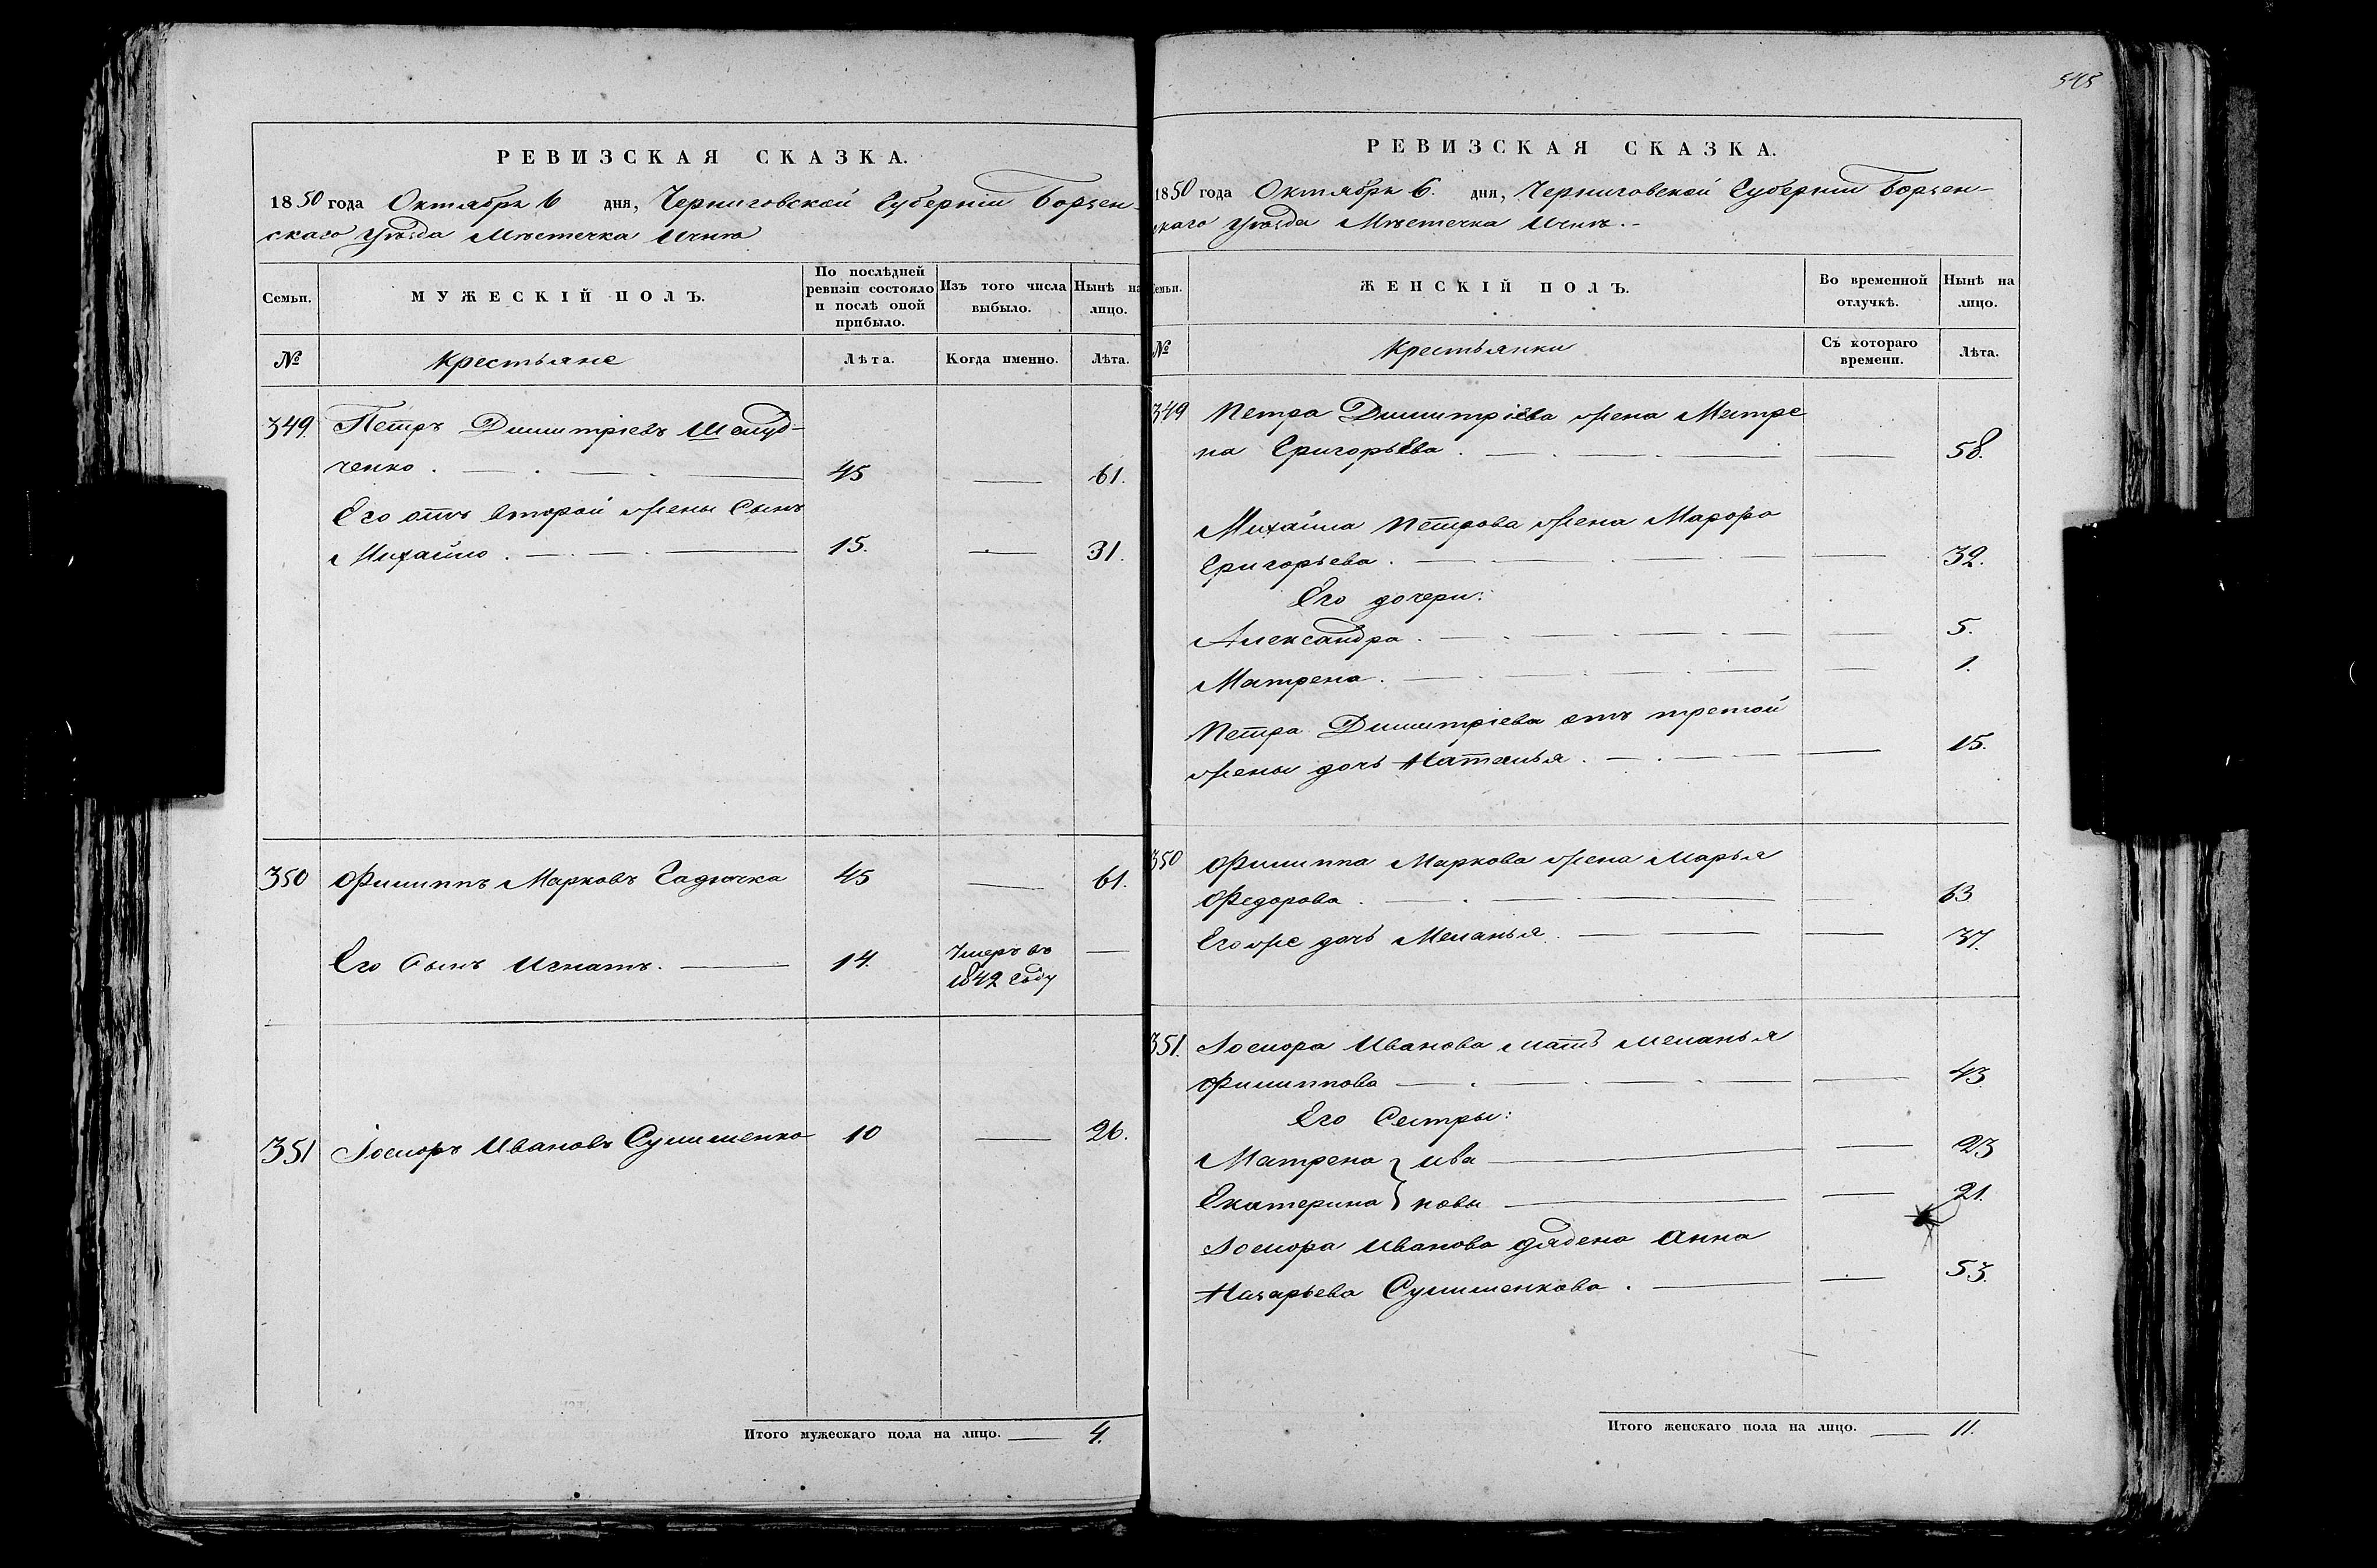 РЕВИЗСКАЯ СКАЗКА.
1850 года Октября 6 дня, Черниговской Губерніи Борзен-
скаго Уѣзда Мѣстечка Ичнѣ
Семьи. МУЖЕСКІЙ ПОЛЪ. По послѣдней ревизіи состояло и послѣ оной прибыло. Изъ того числа выбыло. Нынѣ на лицо.
№ Крестьяне Лѣта. Когда именно. Лѣта.
349. Петръ Димитріевъ Шелуд-
ченко. 45 61.
Его отъ второй жены Сынъ
Михайло. 15. 31.
350 Филиппъ Марковъ Гадючка 45 61.
Его Сынъ Игнатъ. 14. Умеръ въ
1842 году
351 Іосифъ Ивановъ 10 26.
Итого мужескаго пола на лицо. 4.
545
РЕВИЗСКАЯ СКАЗКА.
1850 года Октября 6. дня, Черниговской Губерніи Борзен-
скаго Уѣзда Мѣстечка Ичнѣ.
Семьи. ЖЕНСКІЙ ПОЛЪ. Во временной отлучкѣ. Нынѣ на лицо.
№ Крестьянки Съ котораго времени. Лѣта.
349 Петра Димитріева жена Матре
на Григорьева. 58.
Михайла Петрова жена Марфа
Григорьева. 32.
Его дочери:
Александра. 5.
Матрена. 1.
Петра Димитріева отъ третой
жены дочь Наталья. 15.
350 Филиппа Маркова жена Марья
Федорова. 63
Его же дочь Меланья. 37.
351. Іосифа Иванова мать Меланья
Филиппова 43.
Его Сестры:
Матрена } Ива 23
Екатерина } новы 21.
Іосифа Иванова дядена Анна
Назарьева 53.
Итого женскаго пола на лицо. 11.